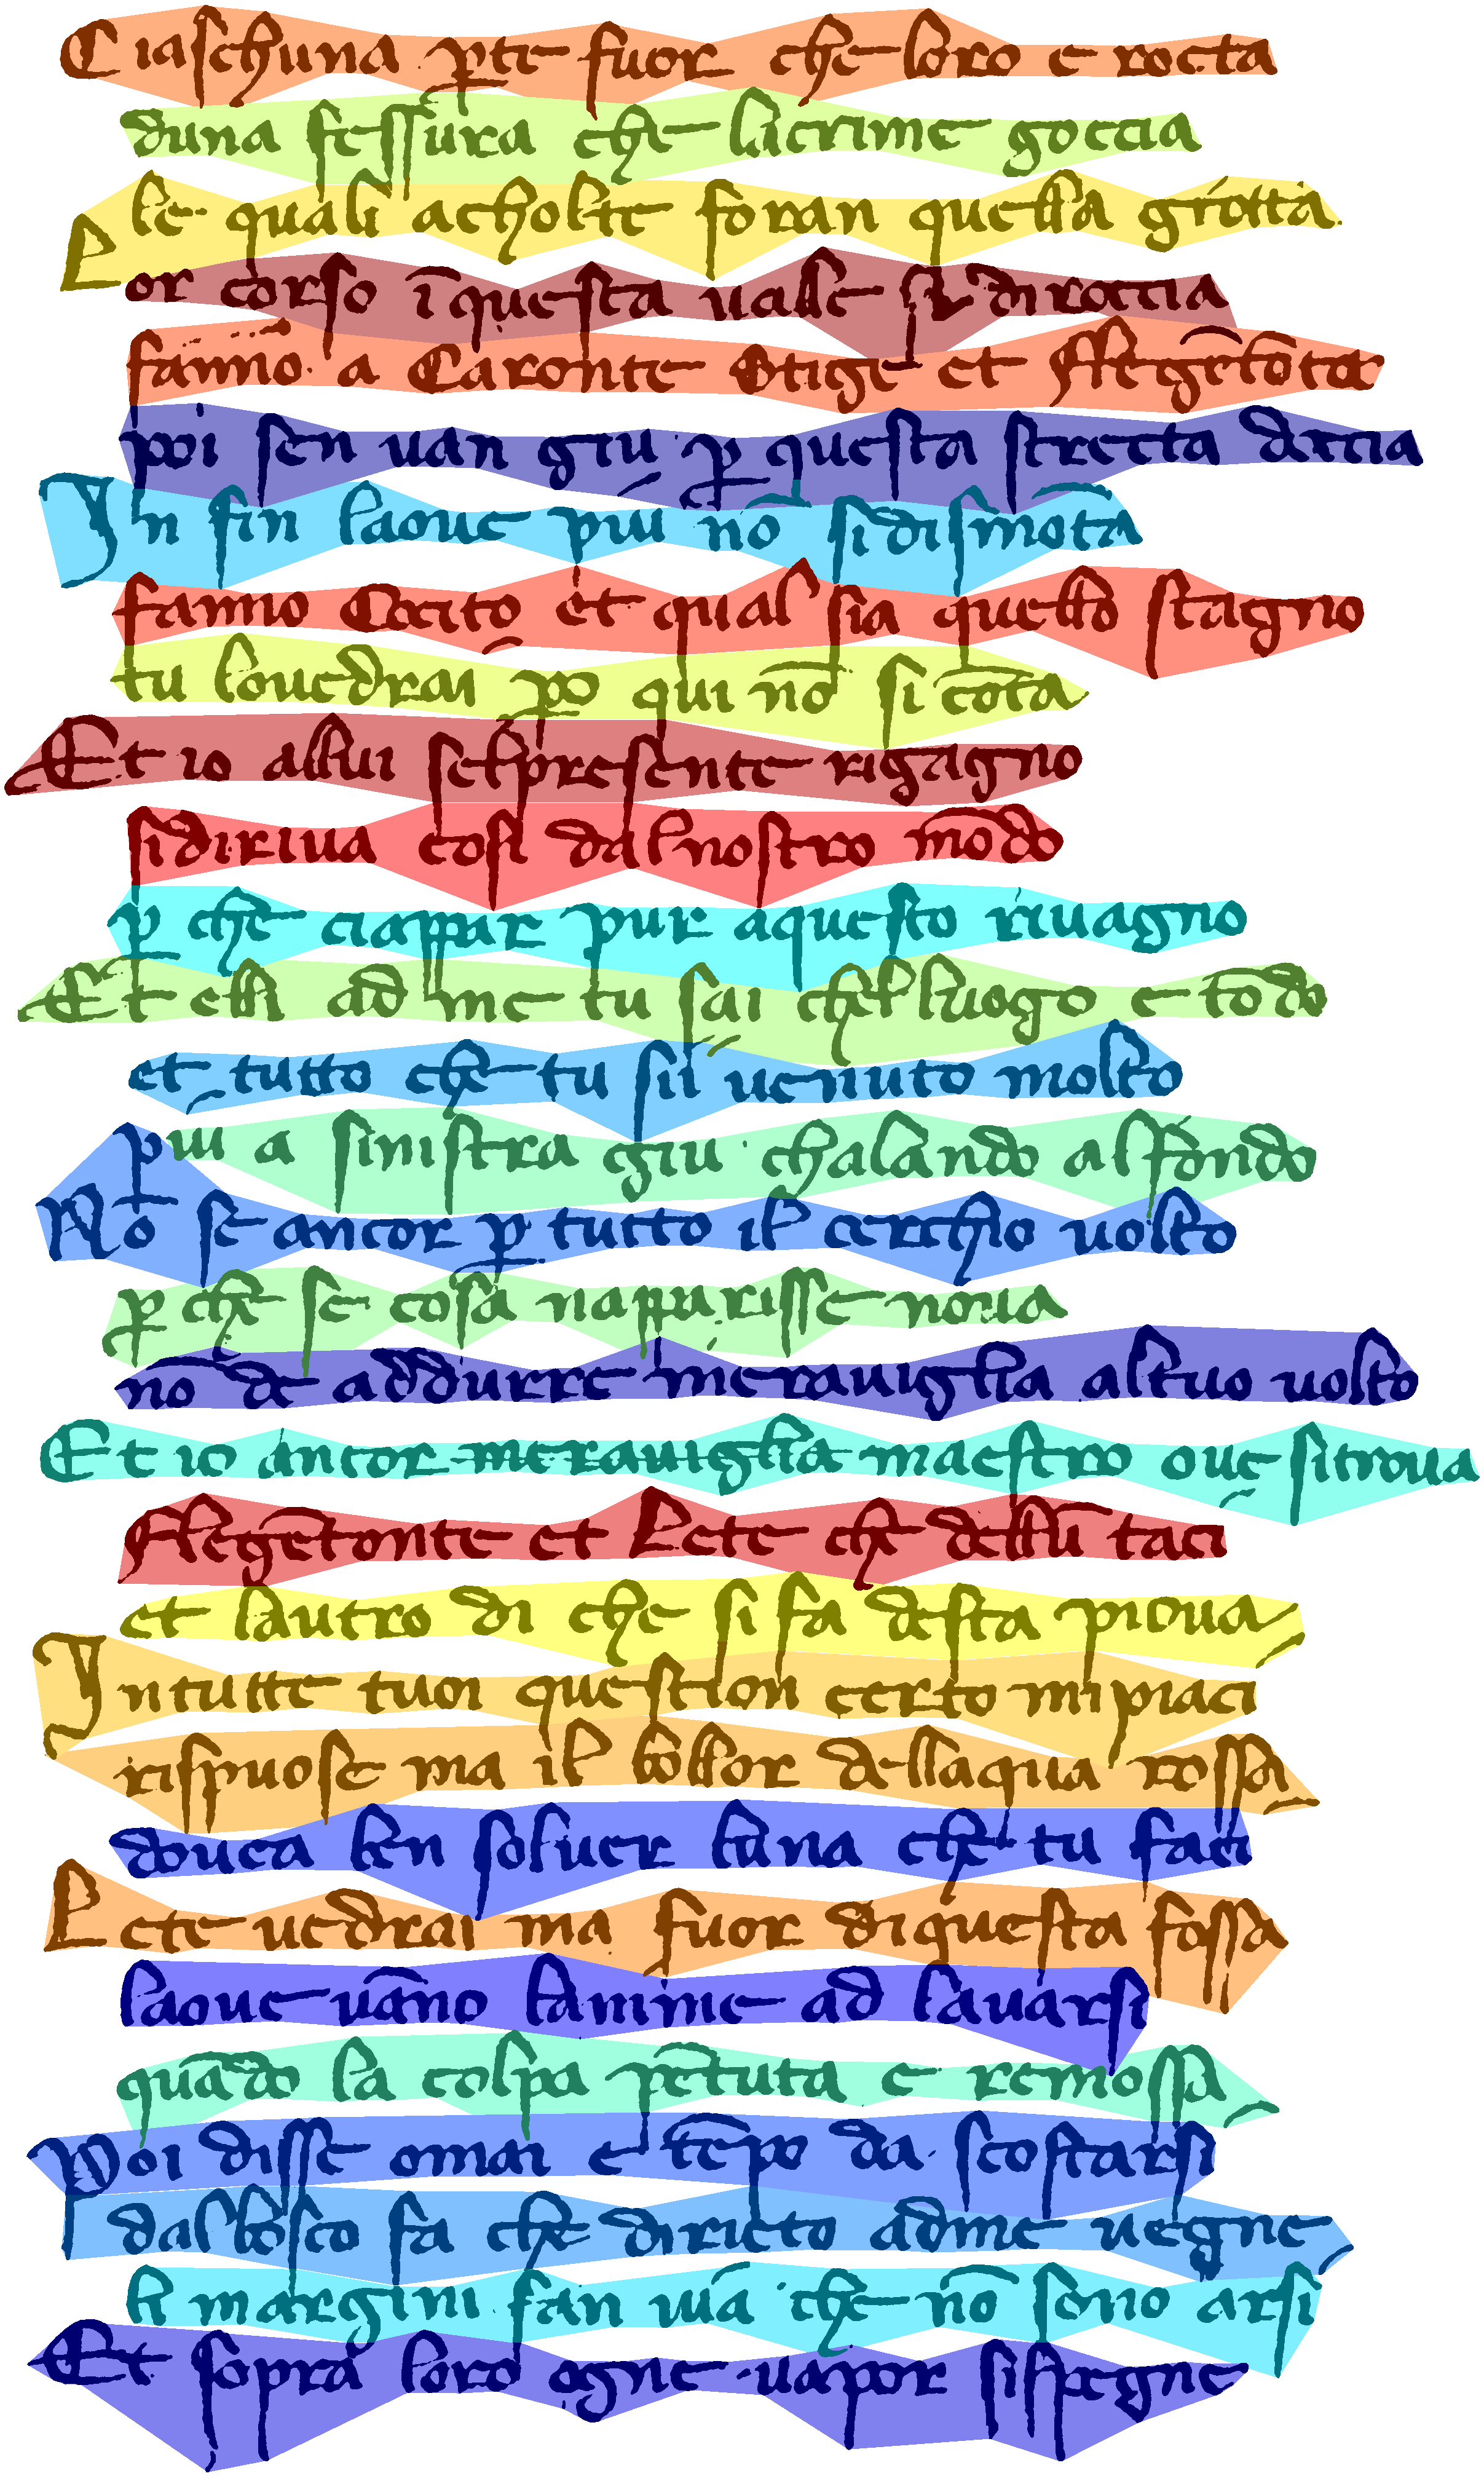 Ciaschuna ꝑte fuor che loro e rocta
duna fessura che lacrime goccia
le quali acholte foran quella grotta
Lor corso ĩ questa valle si diroccia
fanno a Caronte Stige et Flegetõta
poi sen uan giu ꝑ questa strecta doccia
In fin laoue piu nõ si dismõta
fanno Cocito et qual sia quello stagno
tu louedrai ꝑo qui nõ si cõta
Et io allui sel presente rigagno
si diriua cosi dal nostro mõdo
ꝑ che ciappar pur aquesto riuagno
Et elli ad me tu sai chel luogo e tõdo
et tutto che tu sii uenuto molto
piu a sinistra giu chalando al fondo
Nõ se ancor ꝑ tutto il cerchio uolto
ꝑ che se cosa napparisse noua
nõ de addurre merauiglia altuo uolto
Et io ancor merauiglia maestro oue sitroua
Flegẽtonte et Lete che dellũ taci
et laltro di che si fa desta pioua
In tutte tuoi question certo mi piaci
rispuose ma il bollor dellaqua rossa
douea ben soluer luna che tu faci
Lete uedrai ma fuor di questa fossa
laoue uãno lanime ad lauarsi
quãdo la colpa pẽtuta e remossa
Poi disse omai e tẽpo da scostarsi
dal bosco fa che dirieto adme uegne
li margini fan uia che nõ sono arsi
Et sopra loro ogne uapor si spegne